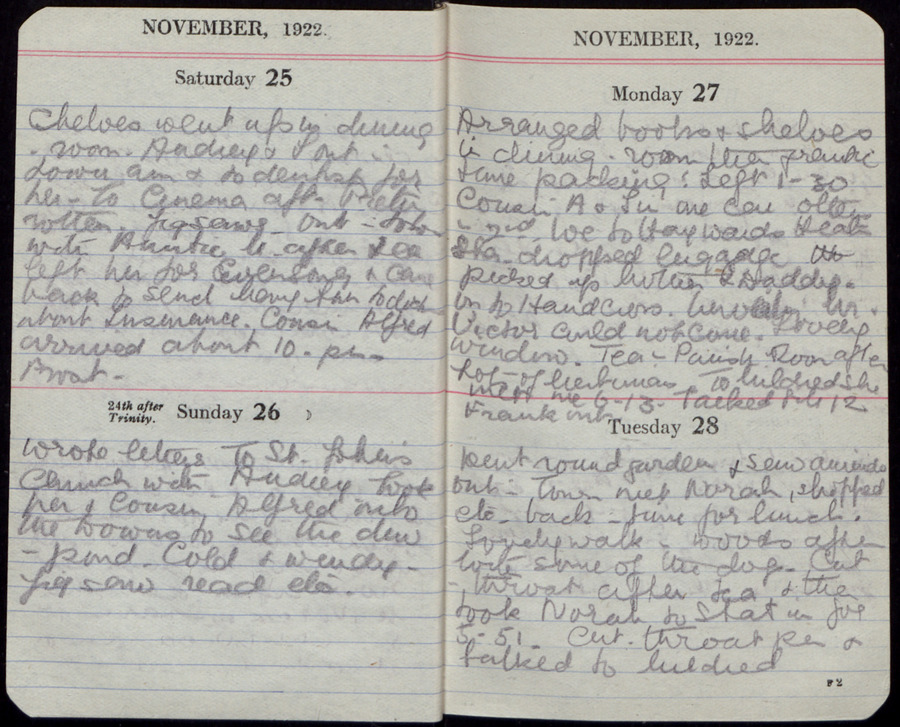 NOVEMBER, 1922.
Saturday 25
Shelves went up in dining
- room. Audrey & I out -
down am & to dentist for
her - To Cinema aft.
rotten. Jigsaws out -
with Auntie M. after tea
left her for Evensong & came
back to send
about Insurance. Cousin Alfred
arrived about 10. pm
Frost -
24th after Trinity. Sunday 26
Wrote letters To St. John's
Church with Audrey took
her & Cousin Alfred onto
the Downs to see the dew
- pond. Cold & windy -
Jigsaw read etc.
NOVEMBER, 1922.
Monday 27
Arranged books & shelves
in dining - room then frantic
time packing! Left 1-30
Cousin A & in one car other
in 2nd - We to Haywards Heath
Sta. dropped luggage
picked up Mother & Daddy -
on to Handcross.
Victor could not come. Lovely
window. Tea - Parish Room after
lot of To Mildred she
met me 6-13. Talked till 12
Frank out
Tuesday 28
Went round garden & sew amends
out - Town met Norah, shopped
etc - back - time for lunch.
Lovely walk - woods after
with some of the dogs. Cut
- throat after tea & then
took Norah to Stat in for
5-51. Cut-throat &
talked to Mildred
F 2